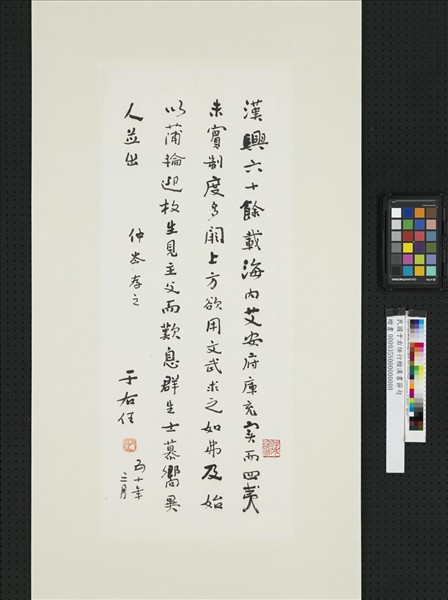 漢興六十餘載海內艾安府庫充實而四夷
未賓制度多闕上方欲用文武求之如弗及始
以蒲輪迎枚生見主父而歎息群生士慕嚮異
人並出
仲岑存之
于右任
五十年
三月
民國于右任行楷漢書節句